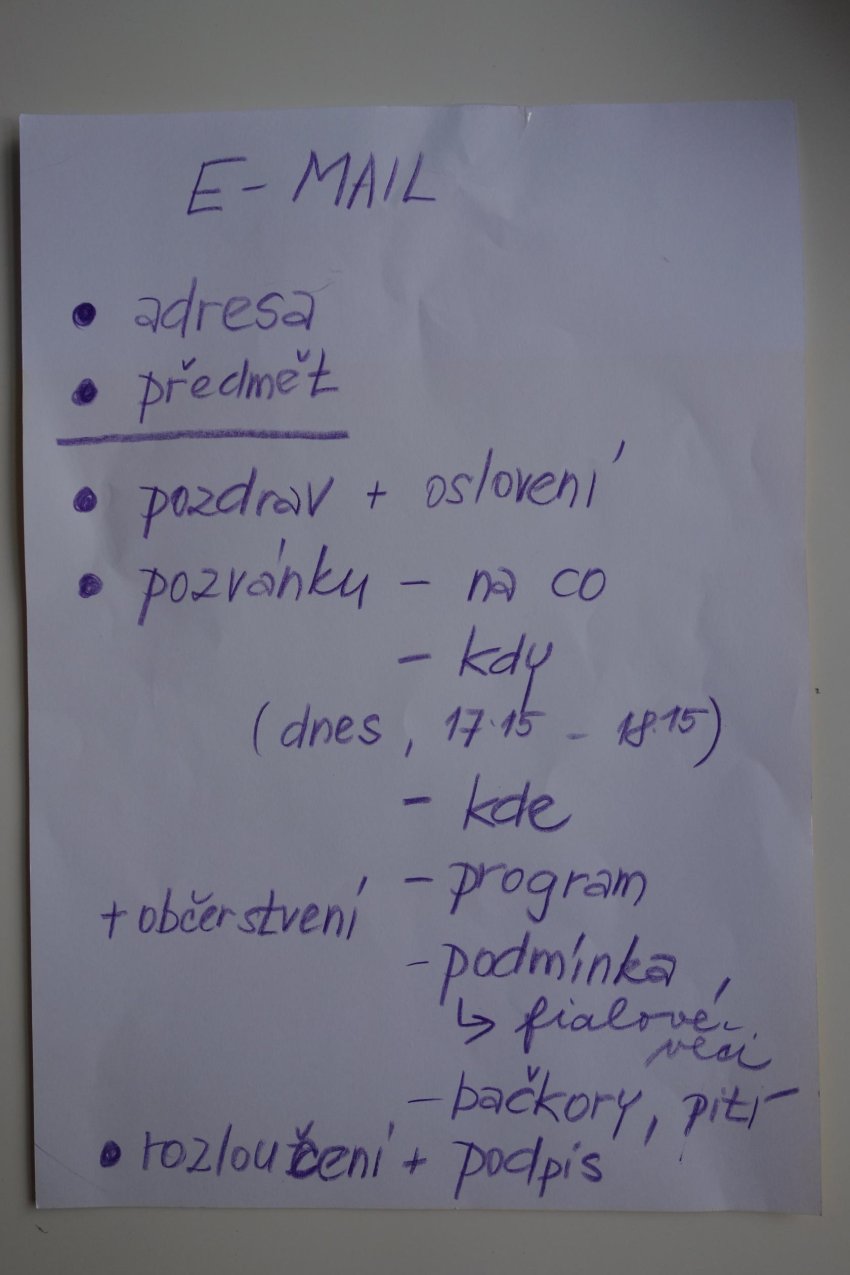 E- MAIL
• adresa
• předmět
• pozdrav + oslovení
• pozvánku - na co
- kdy
(dnes, 17.15 - 18.15)
- kde
- program
+ občerstvení
- podmínka
↳ fialové
věci
- bačkory, pití
• rozloučení + podpis